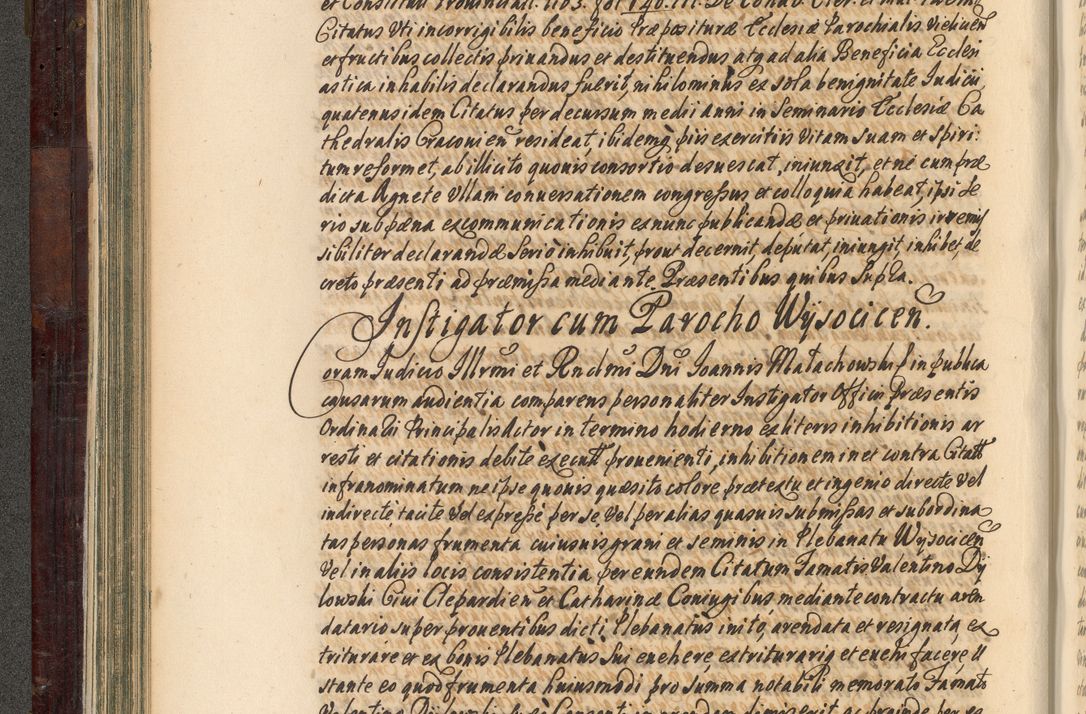 et Constitut: Provinciali:
Citatus Uti incorrigibilis beneficio Præpositurae Ecclesiæ Parochialis Vieliciens
et fructibus collectis privandus et destituendus atq ad alia Beneficia Ecclesi
astica inhabilis declarandus fuerit, nihilominus ex sola benignitate Iudicii,
quatenus idem Citatus per decursum medii anni in Seminario Ecclesiæ Ca
thedralis Cracovien̄ resideat, ibidemq̀ piis exercitiis Vitam suam et Spiri:
tum reformet, ab illicito quovis consortio desuescat, iniunxit, et ne cum præ
dicta Agnete Ullam conversationem congressus et colloquia habeat, ipsi se
rio sub pæna excommunicationis ex nunc publicandæ et privationis irremis
sibiliter declarandæ Seriò inhibuit, prout decernit, deputat, iniungit, inhibet, de
creto præsenti ad præmissa mediante. Præsentibus quibus Supra.
Instigator cum Parocho Wÿsocicen̄.
Coram Iudicio Illr̄mi et Rndm̄i Dn̄i Ioannis Małachowski in publica
causarum audientia comparens personaliter Instigator Officii Præsentis
Ordinarii Principalis Actor in termino hodierno ex literis inhibitionis ar
resti et citationis debitè executt provenienti, inhibitionem in et contra Citatt
infranominatum ne ipse quovis quæsito colore prætextu et ingenio directe Vel
indirecte tacite Vel expressè per se, Vel per alias quasvis submissas et subordina
tas personas frumenta cuiusvis grani et seminis in Plebanatu Wysocicen̄
Vel in aliis locis consistentia per eundem Citatum Famatis Valentino Dÿ
lowski Civi Clepardien̄ et Catharinæ Coniugibus mediante contractu aren
datario super proventibus dicti Plebanatus inito, arendata et resignata, ex
triturare et ex bonis Plebanatus Sui enehere, extriturariq et evehi facere, U
stante eo quod frumenta huiusmodi pro summa notabili memorato Famato
Valentino Dÿlowski